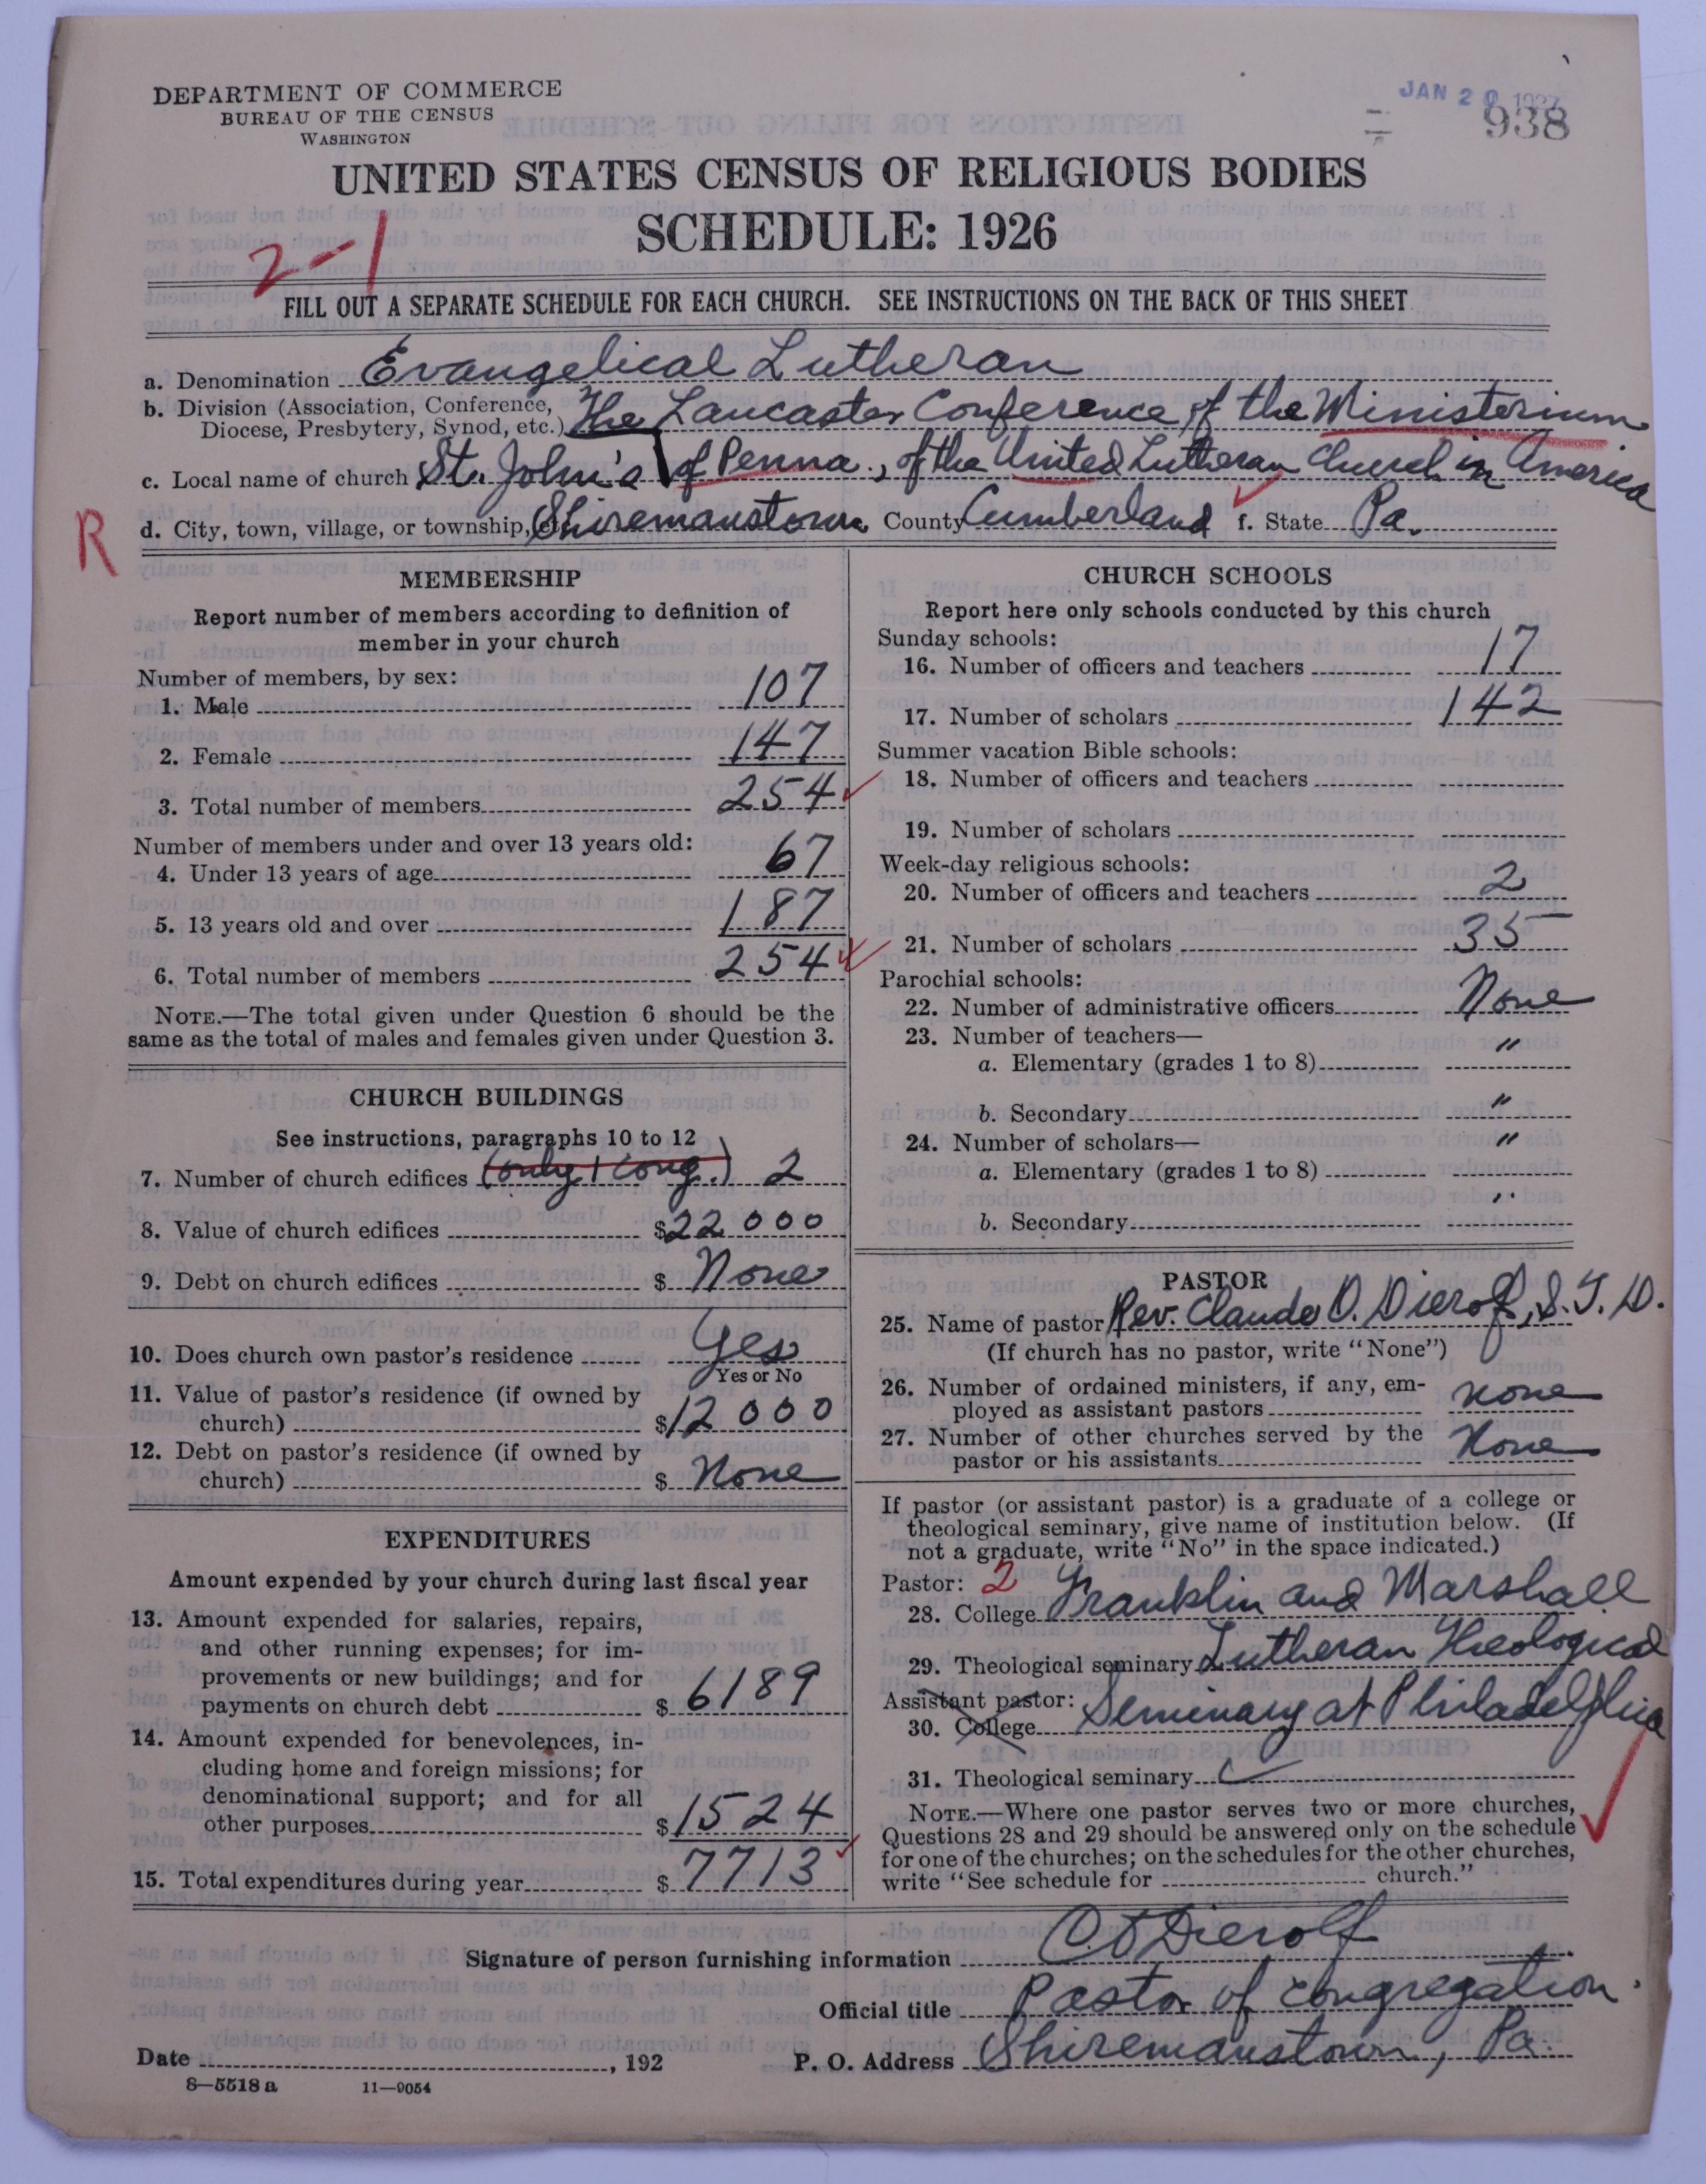 DEPARTMENT OF COMMERCE
BUREAU OF THE CENSUS
WASHINGTON
JAN 20 1927
938
UNITED STATES CENSUS OF RELIGIOUS BODIES
SCHEDULE: 1926
2-1
FILL OUT A SEPARATE SCHEDULE FOR EACH CHURCH. SEE INSTRUCTIONS ON THE BACK OF THIS SHEET
a. Denomination Evangelical Lutheran
b. Division (Association, Conference, Diocese, Presbytery, Synod, etc.) The Lancaster Conference of the Ministerium
c. Local name of church St. John's of Penna., of the United Lutheran Church in America
R
d. City, town, village, or township, Shiremanstown County Cumberland f. State Pa.
MEMBERSHIP
Report number of members according to definition of
member in your church
Number of members, by sex:
1. Male 107
2. Female 147
3. Total number of members 254
Number of members under and over 13 years old:
4. Under 13 years of age 67
5. 13 years old and over 187
6. Total number of members 254
NOTE.—The total given under Question 6 should be the
same as the total of males and females given under Question 3.
CHURCH BUILDINGS
See instructions, paragraphs 10 to 12
7. Number of church edifices (only 1 cong.) 2
8. Value of church edifices $22000
9. Debt on church edifices $ None
10. Does church own pastor's residence Yes
Yes or No
11. Value of pastor's residence (if owned by
church) $12000
12. Debt on pastor's residence (if owned by
church) $ None
EXPENDITURES
Amount expended by your church during last fiscal year
13. Amount expended for salaries, repairs,
and other running expenses; for im-
provements or new buildings; and for
payments on church debt $ 6189
14. Amount expended for benevolences, in-
cluding home and foreign missions; for
denominational support; and for all
other purposes $1524
15. Total expenditures during year $ 7713
CHURCH SCHOOLS
Report here only schools conducted by this church
Sunday schools:
16. Number of officers and teachers 17
17. Number of scholars 142
Summer vacation Bible schools:
18. Number of officers and teachers
19. Number of scholars
Week-day religious schools:
20. Number of officers and teachers 2
21. Number of scholars 35
Parochial schools:
22. Number of administrative officers None
23. Number of teachers—
a. Elementary (grades 1 to 8) "
b. Secondary "
24. Number of scholars— "
a. Elementary (grades 1 to 8)
b. Secondary "
PASTOR
25. Name of pastor Rev. Claude O. Dierolf, S.T.D.
(If church has no pastor, write "None")
26. Number of ordained ministers, if any, em-
ployed as assistant pastors none
27. Number of other churches served by the
pastor or his assistants None
If pastor (or assistant pastor) is a graduate of a college or
theological seminary, give name of institution below. (If
not a graduate, write "No" in the space indicated.)
Pastor: 2
28. College Franklin and Marshall
29. Theological seminary Lutheran Theological
Assistant pastor: Seminary at Philadelphia
30. College
31. Theological seminary
NOTE.—Where one pastor serves two or more churches,
Questions 28 and 29 should be answered only on the schedule
for one of the churches; on the schedules for the other churches,
write "See schedule for church."
Signature of person furnishing information C. O. Dierolf
Official title Pastor of congregation.
Date , 192 P. O. Address Shiremanstown, Pa.
8—5518 a 11—9054